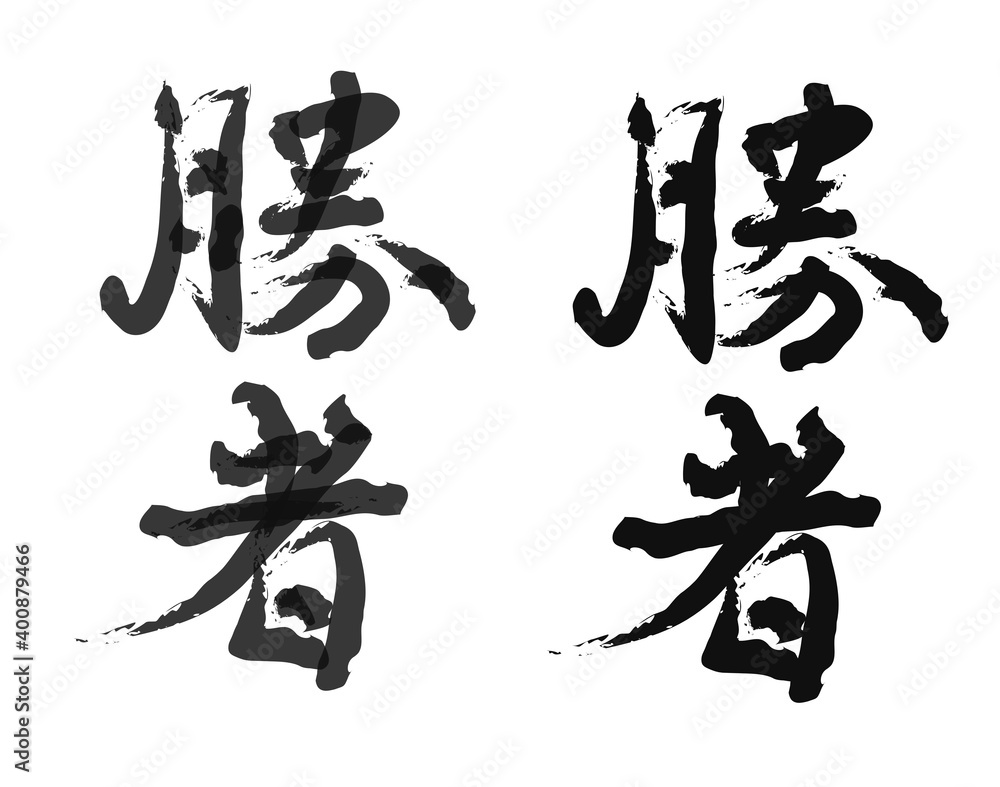 勝者
勝者
Adobe Stock | #400879466